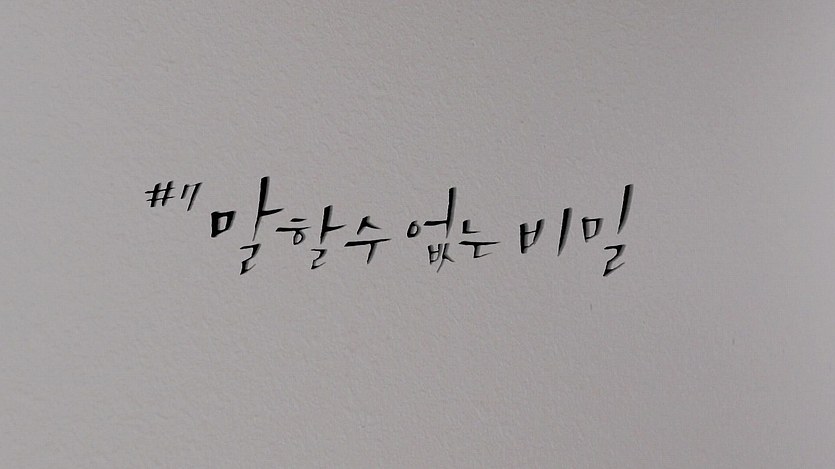 #7 말할수 없는 비밀